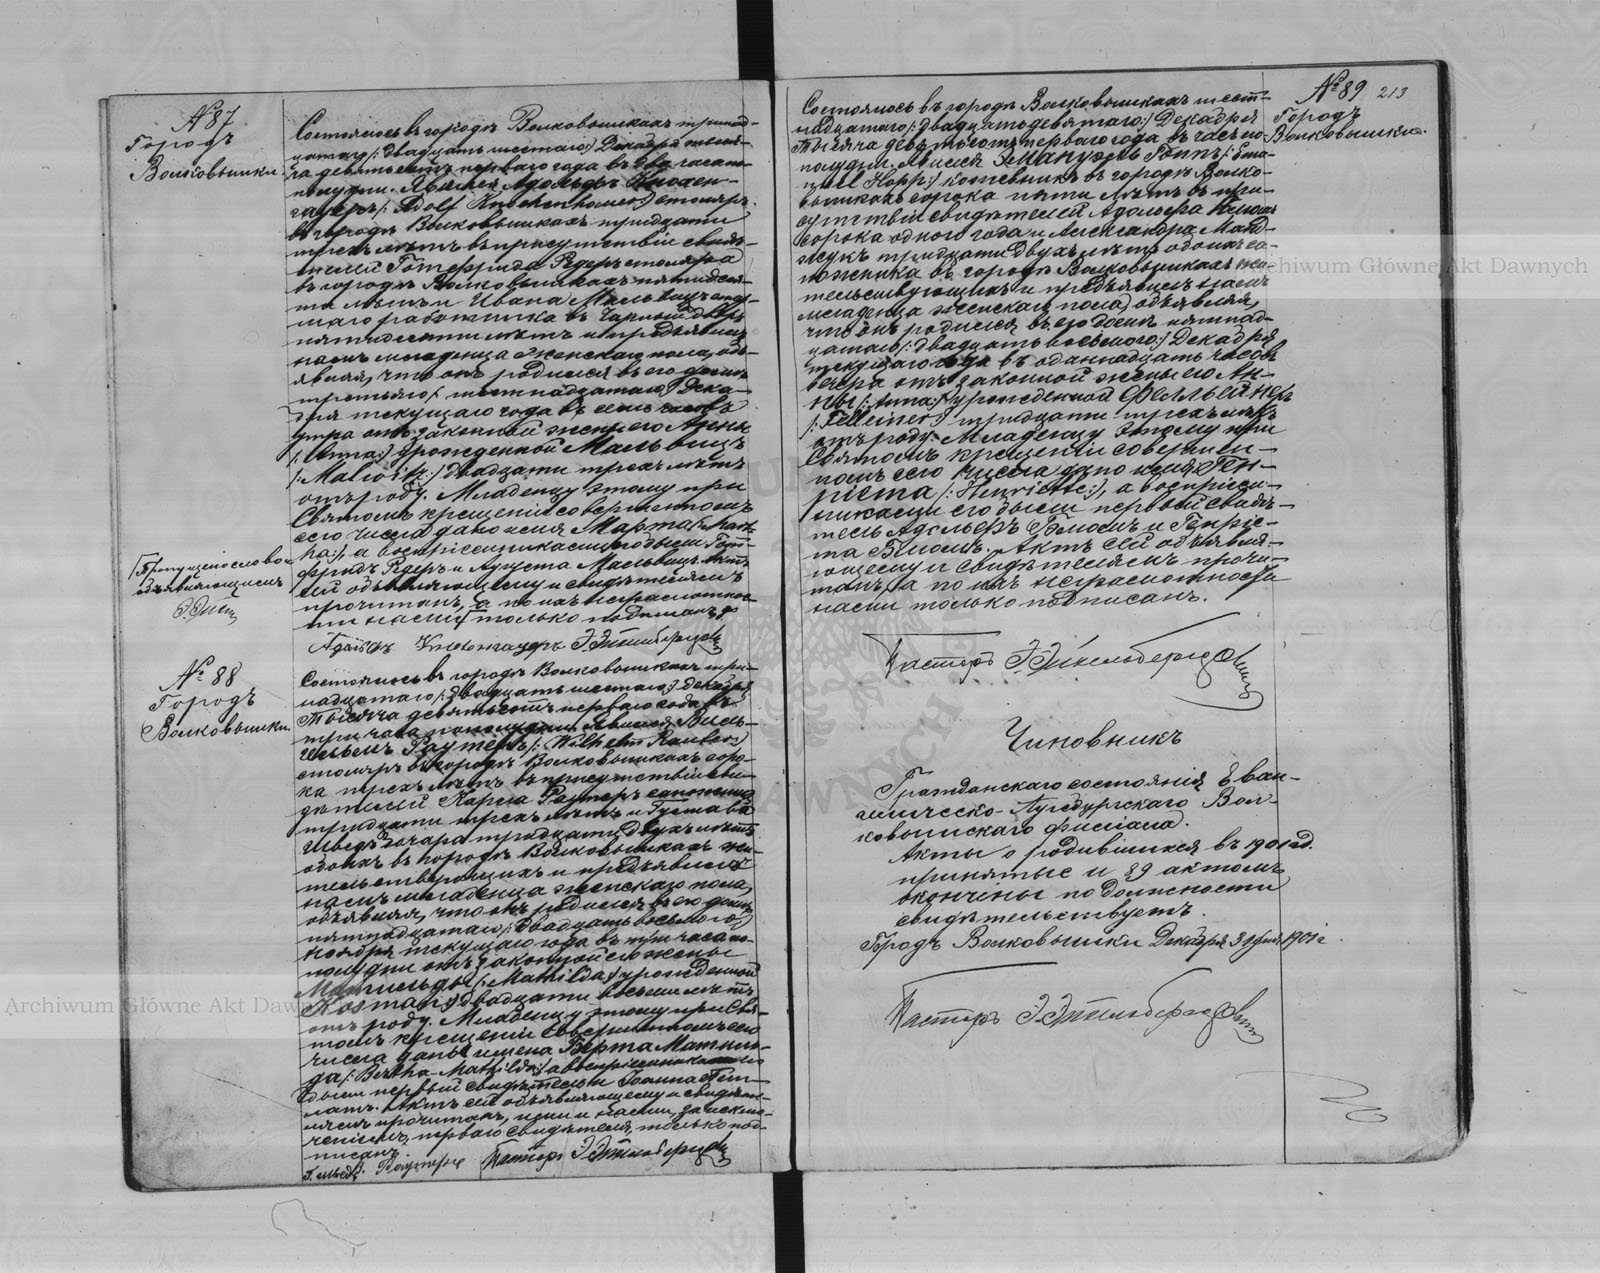 № 87
Городъ
Волковышки.
Состоялось въ городѣ Волковышкахъ тринад-
цатаго /: двадцать шестаго :/ Декабря тыся-
ча девятьсотъ перваго года въ два часа по-
полудни. Явился Адольфъ Кнохен-
гауеръ /: Adolf Knochenhauer :/ столяръ
въ городѣ Волковышкахъ тридцати
трехъ лѣтъ въ присутствіи свидѣ-
телей Готфрида Редеръ столяра
въ городѣ Волковышкахъ пятидеся-
ти лѣтъ и Ивана Мальвицъ
работника въ
пятидесяти лѣтъ и предъявилъ
намъ младенца женскаго пола, объ-
являя, что онъ родился въ его домѣ
третьяго /: шестнадцатаго :/ Дека-
бря текущаго года въ семь часовъ
утра отъ законной жены его Анны
/: Anna :/ урожденной Мальвицъ
/: Malwitz :/ двадцати трехъ лѣтъ
отъ роду. Младенцу этому при
Святомъ крещеніи совершенномъ
сего числа дано имя Марта /: Mart-
ha :/, а воспріемниками его были Гот-
фридъ Редеръ и Августа Мальвицъ. Актъ
сей объявляющему и свидѣтелямъ
прочитанъ, а по ихъ неграмотнос-
ти нами только подписанъ.
/Пропущено слово
объявляющимъ
№ 88
Городъ
Волковышки.
Состоялось въ городѣ Волковышкахъ три-
надцатаго /: двадцать шестаго :/ Декабря
Тысяча девятьсотъ перваго года въ
три часа пополудни. Явился Виль-
гельмъ Раутеръ /: Wilhelm Rauter :/
столяръ въ городѣ Волковышкахъ соро-
ка трехъ лѣтъ въ присутствіи сви-
дѣтелей Карла Раутеръ сапожника
тридцати трехъ лѣтъ и Густава
Шведъ тридцати двухъ лѣтъ
обоихъ въ городѣ Волковышкахъ жи-
тельствующихъ и предъявилъ
намъ младенца женскаго пола,
объявляя, что онъ родился въ его домѣ
пятнадцатаго /: двадцать восьмого :/
Ноября текущаго года въ три часа по-
полудни отъ законной его жены
Матильды /: Mathilda :/ урожденной
двадцати восьми лѣтъ
отъ роду. Младенцу этому при Свя-
томъ крещеніи совершенномъ сего
числа даны имена Берта Матиль-
да /: Bertha-Mathilda :/ а воспріемниками его
были первый свидѣтель и Іоанна
Актъ сей объявляющему и свидѣте-
лямъ прочитанъ, ими и нами, за исклю-
ченіемъ перваго свидѣтеля, только под-
писанъ.
Пасторъ
№ 89 213
Городъ
Волковышки.
Состоялось въ городѣ Волковышкахъ шест-
надцатаго /: двадцать девятаго :/ Декабря
Тысяча девятьсотъ перваго года въ часъ по-
полудни. Явился Эмануэль Гоппъ /: Ema-
nuel Hopp :/ кожевникъ въ городѣ Волко-
вышкахъ сорока пяти лѣтъ въ при-
сутствіи свидѣтелей Адольфа Блюмъ
сорока одного года и Александра
тридцати двухъ лѣтъ обоихъ са-
пожника въ городѣ Волковышкахъ жи-
тельствующихъ и предъявилъ намъ
младенца женскаго пола, объявляя,
что онъ родился въ его домѣ пятнад-
цатаго /: двадцать восьмого :/ Декабря
текущаго года въ одиннадцать часовъ
вечера отъ законной жены его Ан-
ны /: Anna :/ урожденной Феллейнеръ
/: Felleiner :/ тридцати трехъ лѣтъ
отъ роду. Младенцу этому при
Святомъ крещеніи совершен-
номъ сего числа дано имя Ген-
ріета /: Henriette :/, а воспріем-
никами его были первый свидѣ-
тель Адольфъ Блюмъ и Генріе-
та Блюмъ. Актъ сей объявля-
ющему и свидѣтелямъ прочи-
танъ, а по ихъ неграмотности
нами только подписанъ.
Пасторъ
Чиновникъ
Гражданскаго состоянія Еван-
гелическо-Аугсбургскаго Вол-
ковышскаго филіала.
Акты о родившихся въ 1901 год.
принятые и 89 актомъ
окончены по должности
свидѣтельствуетъ.
Городъ Волковышки Декабря 31 дня 1901 г.
Пасторъ
Archiwum Główne Akt Dawnych
Archiwum Główne Akt Dawnych